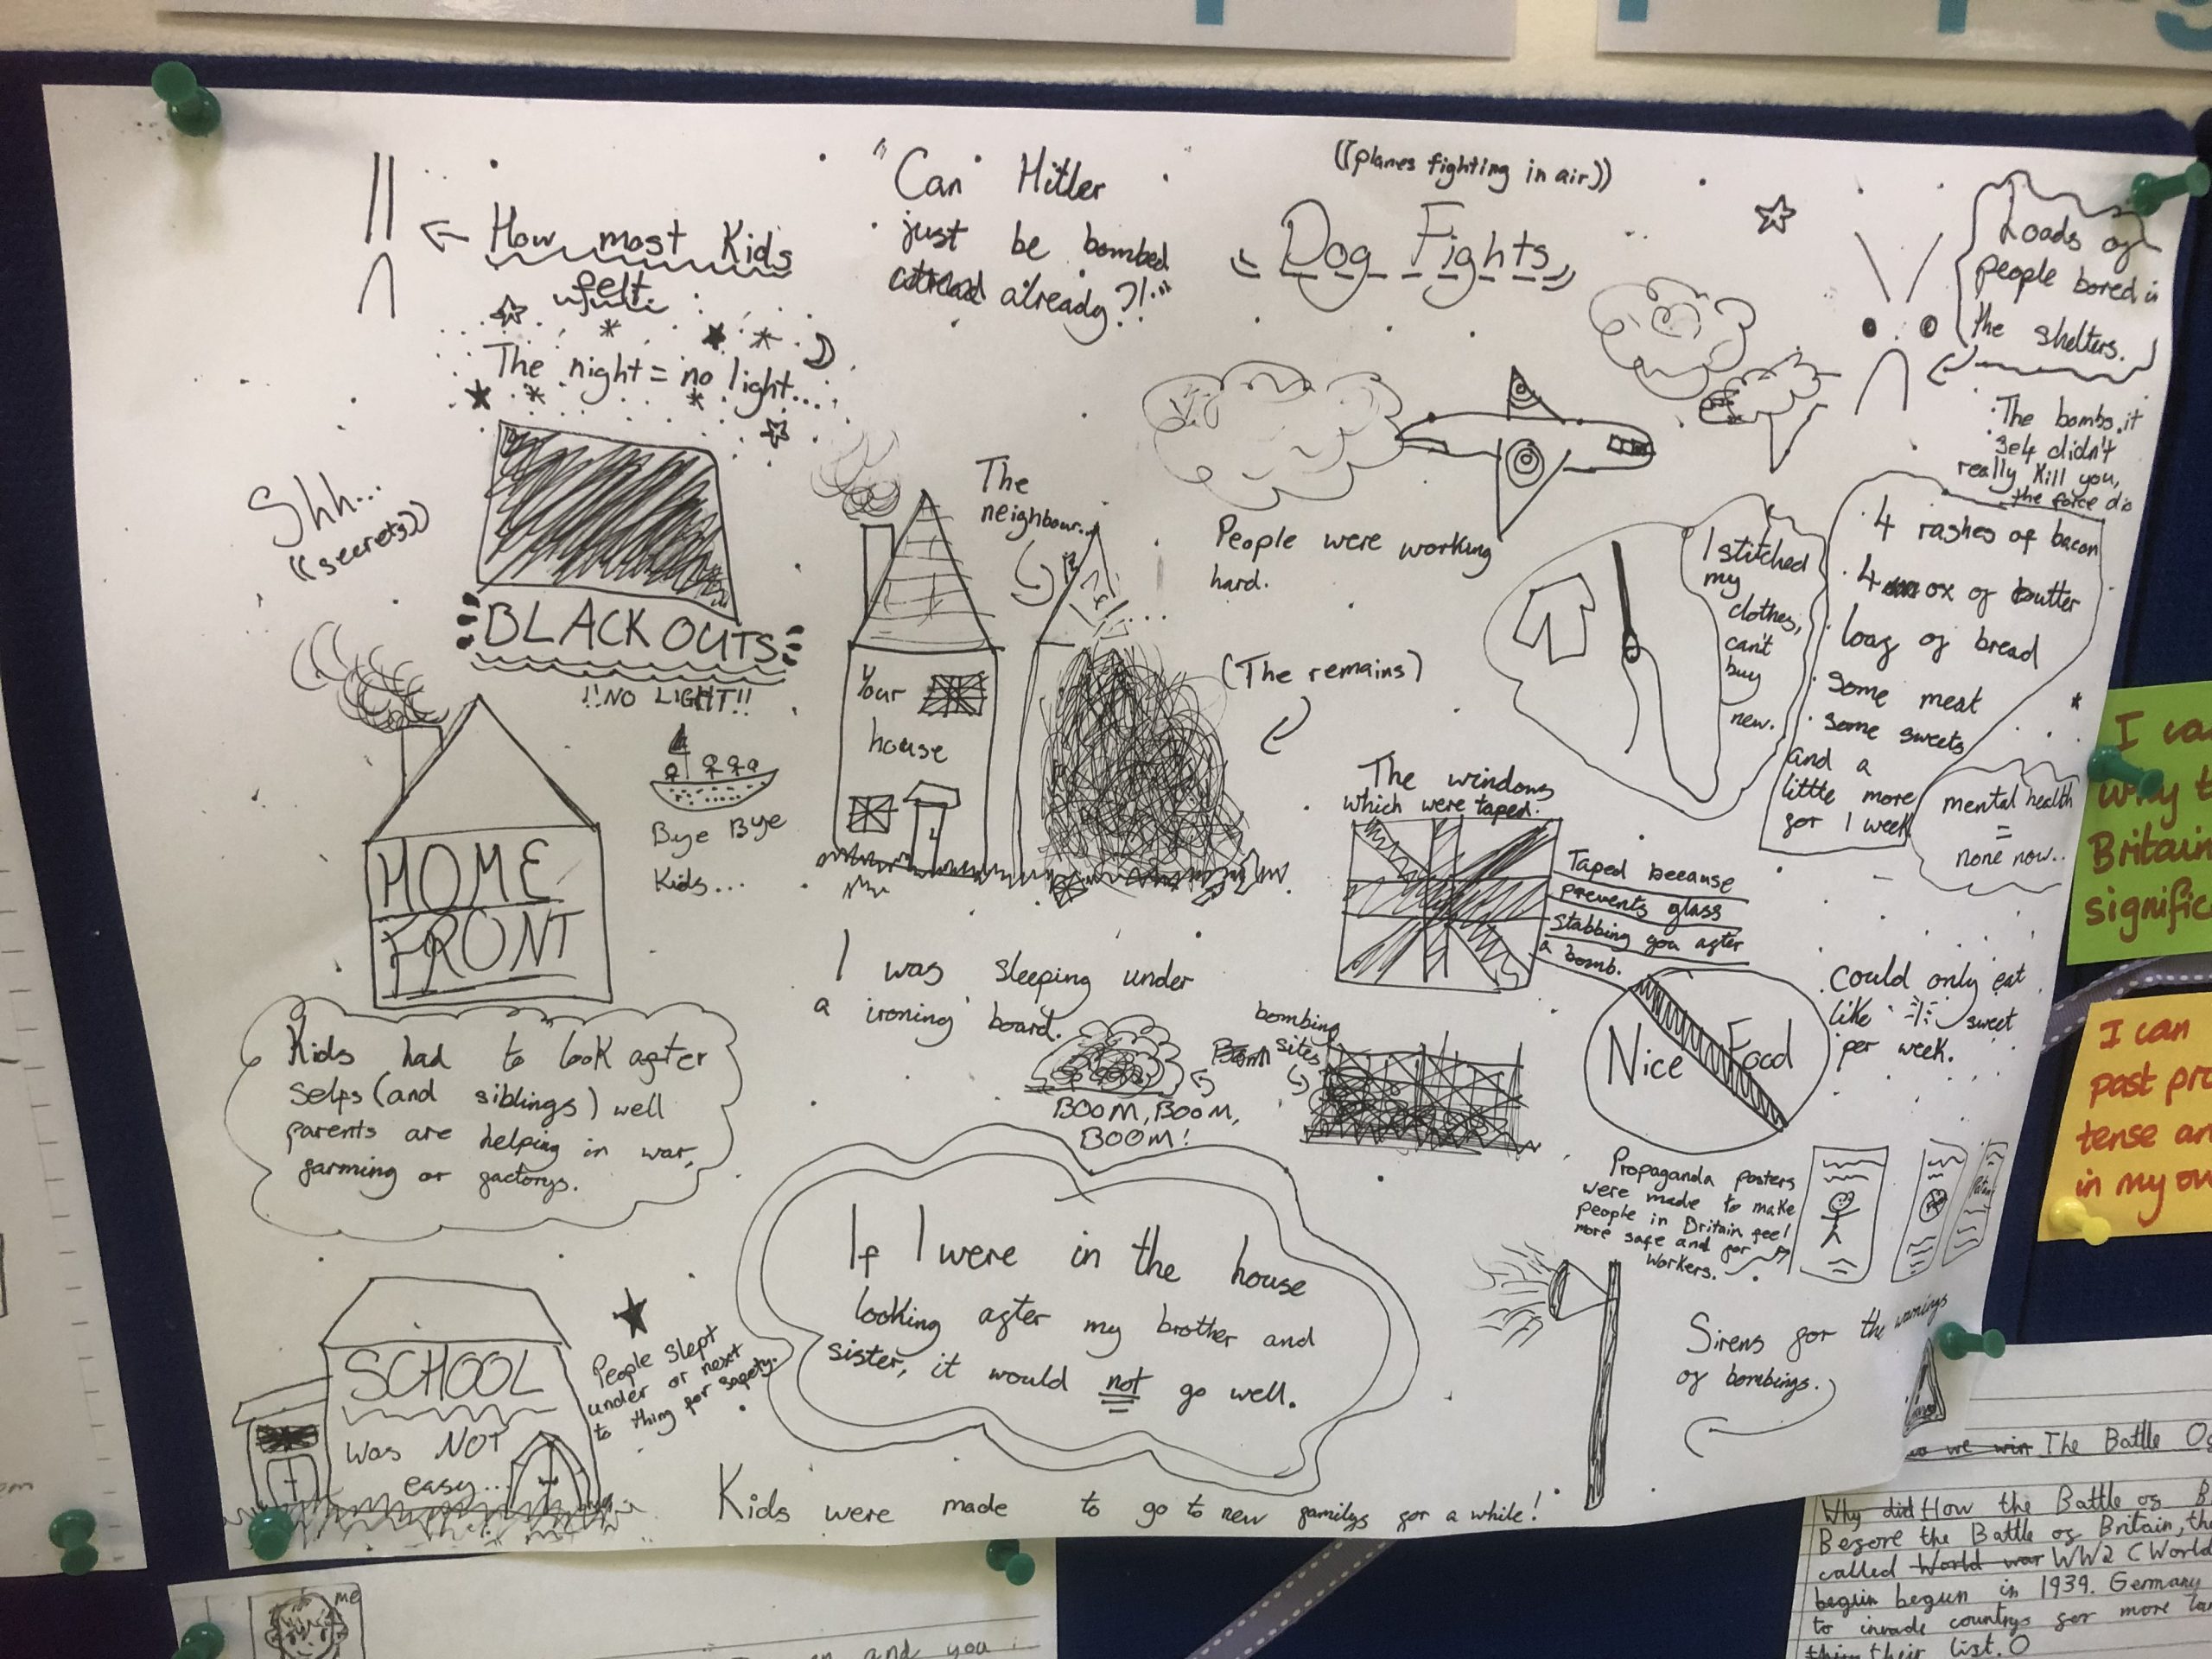 How most Kids
felt
"Can Hitler
just be bombed
already?!.."
((planes fighting in air))
Dog Fights
Loads of
people bored in
the shelters.
The night = no light....
The bombs it
self didn't
really Kill you,
the force did
Shh...
((secrets))
BLACK OUTS
!!NO LIGHT!!
The
neighbour...
Your
house
People were working
hard.
(The remains)
I stitched
my
clothes,
can't
buy
new.
4 rashes of bacon
4 ox of butter
loaf of bread
some meat
some sweets
and a
little more
for 1 week
mental health
=
none now..
HOME
FRONT
Bye Bye
Kids...
The windows
which were taped:
Taped because
prevents glass
stabbing you after
a bomb.
I was sleeping under
a ironing board.
Kids had to look after
selfs (and siblings) well
parents are helping in war,
farming or factorys.
BOOM, BOOM,
BOOM!
bombing
sites
Nice Food
Could only eat
like 1 sweet
per week.
Propaganda posters
were made to make
people in Britain feel
more safe and for
workers.
If I were in the house
looking after my brother and
sister, it would not go well.
SCHOOL
was NOT
easy...
People slept
under or next
to thing for safety.
Sirens for the warnings
of bombings.
Kids were made to go to new familys for a while!
I ca
why t
Britain
signific
I can
past pro
tense an
in my ow
we win The Battle Of
Why did How the Battle of B
Before the Battle of Britain, the
called World war WW2 (World
beguin begun in 1939. Germany
to invade countrys for more la
their list. O
me
and you